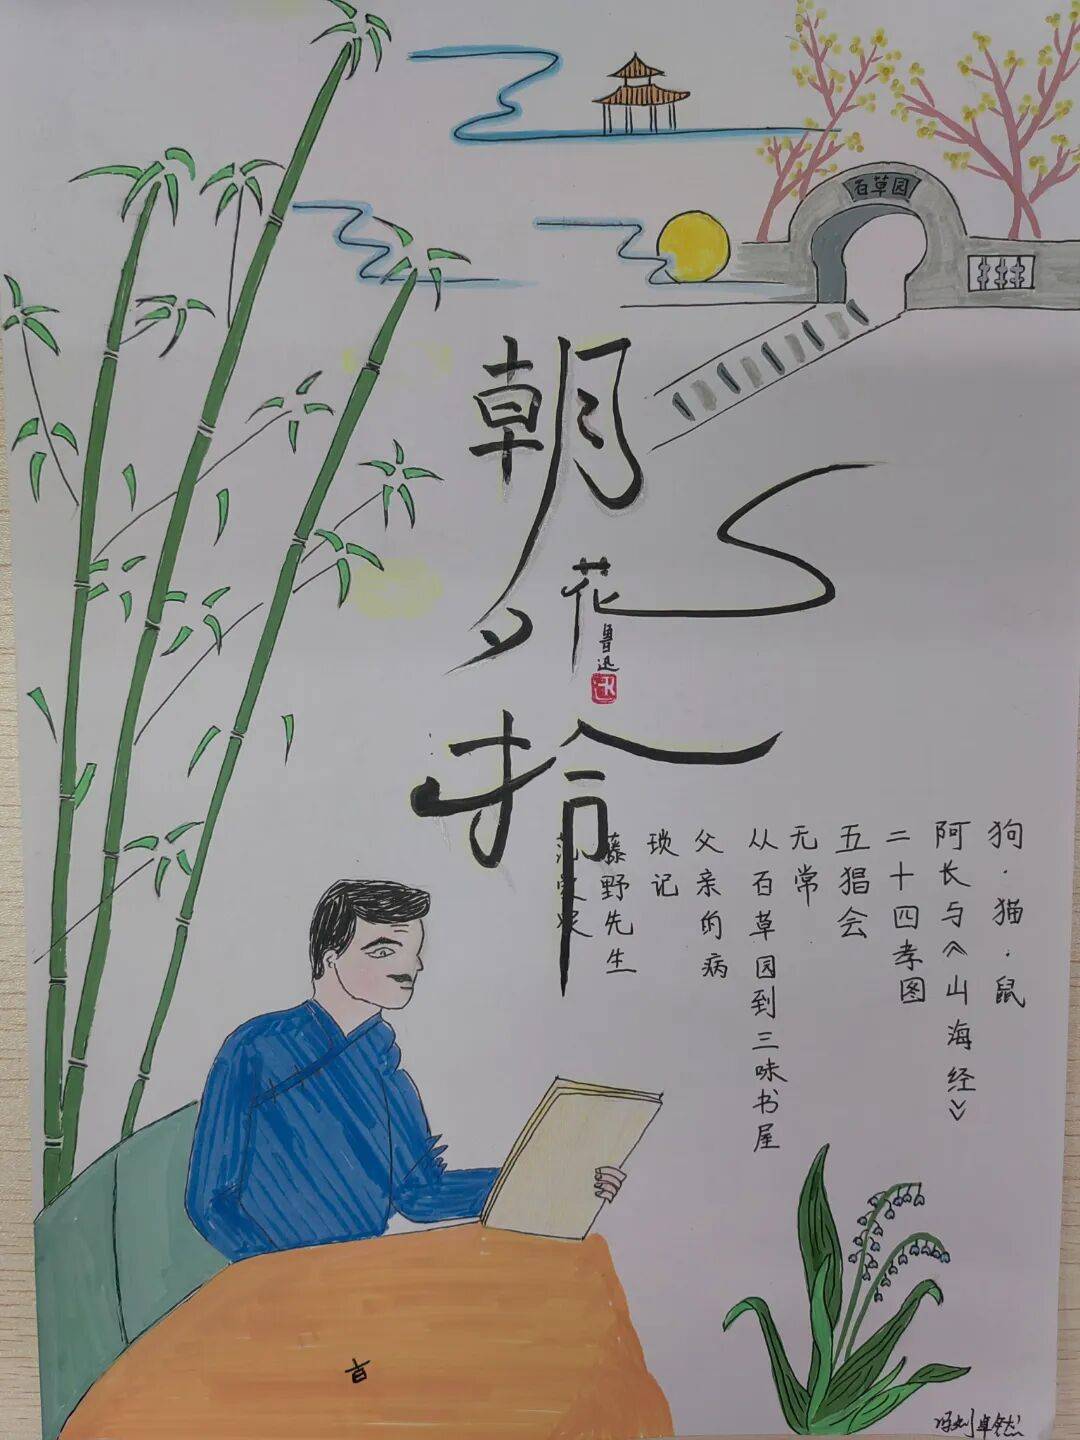 百草园
朝花夕拾
鲁迅
狗·猫·鼠
阿长与《山海经》
二十四孝图
五猖会
无常
从百草园到三味书屋
父亲的病
琐记
藤野先生